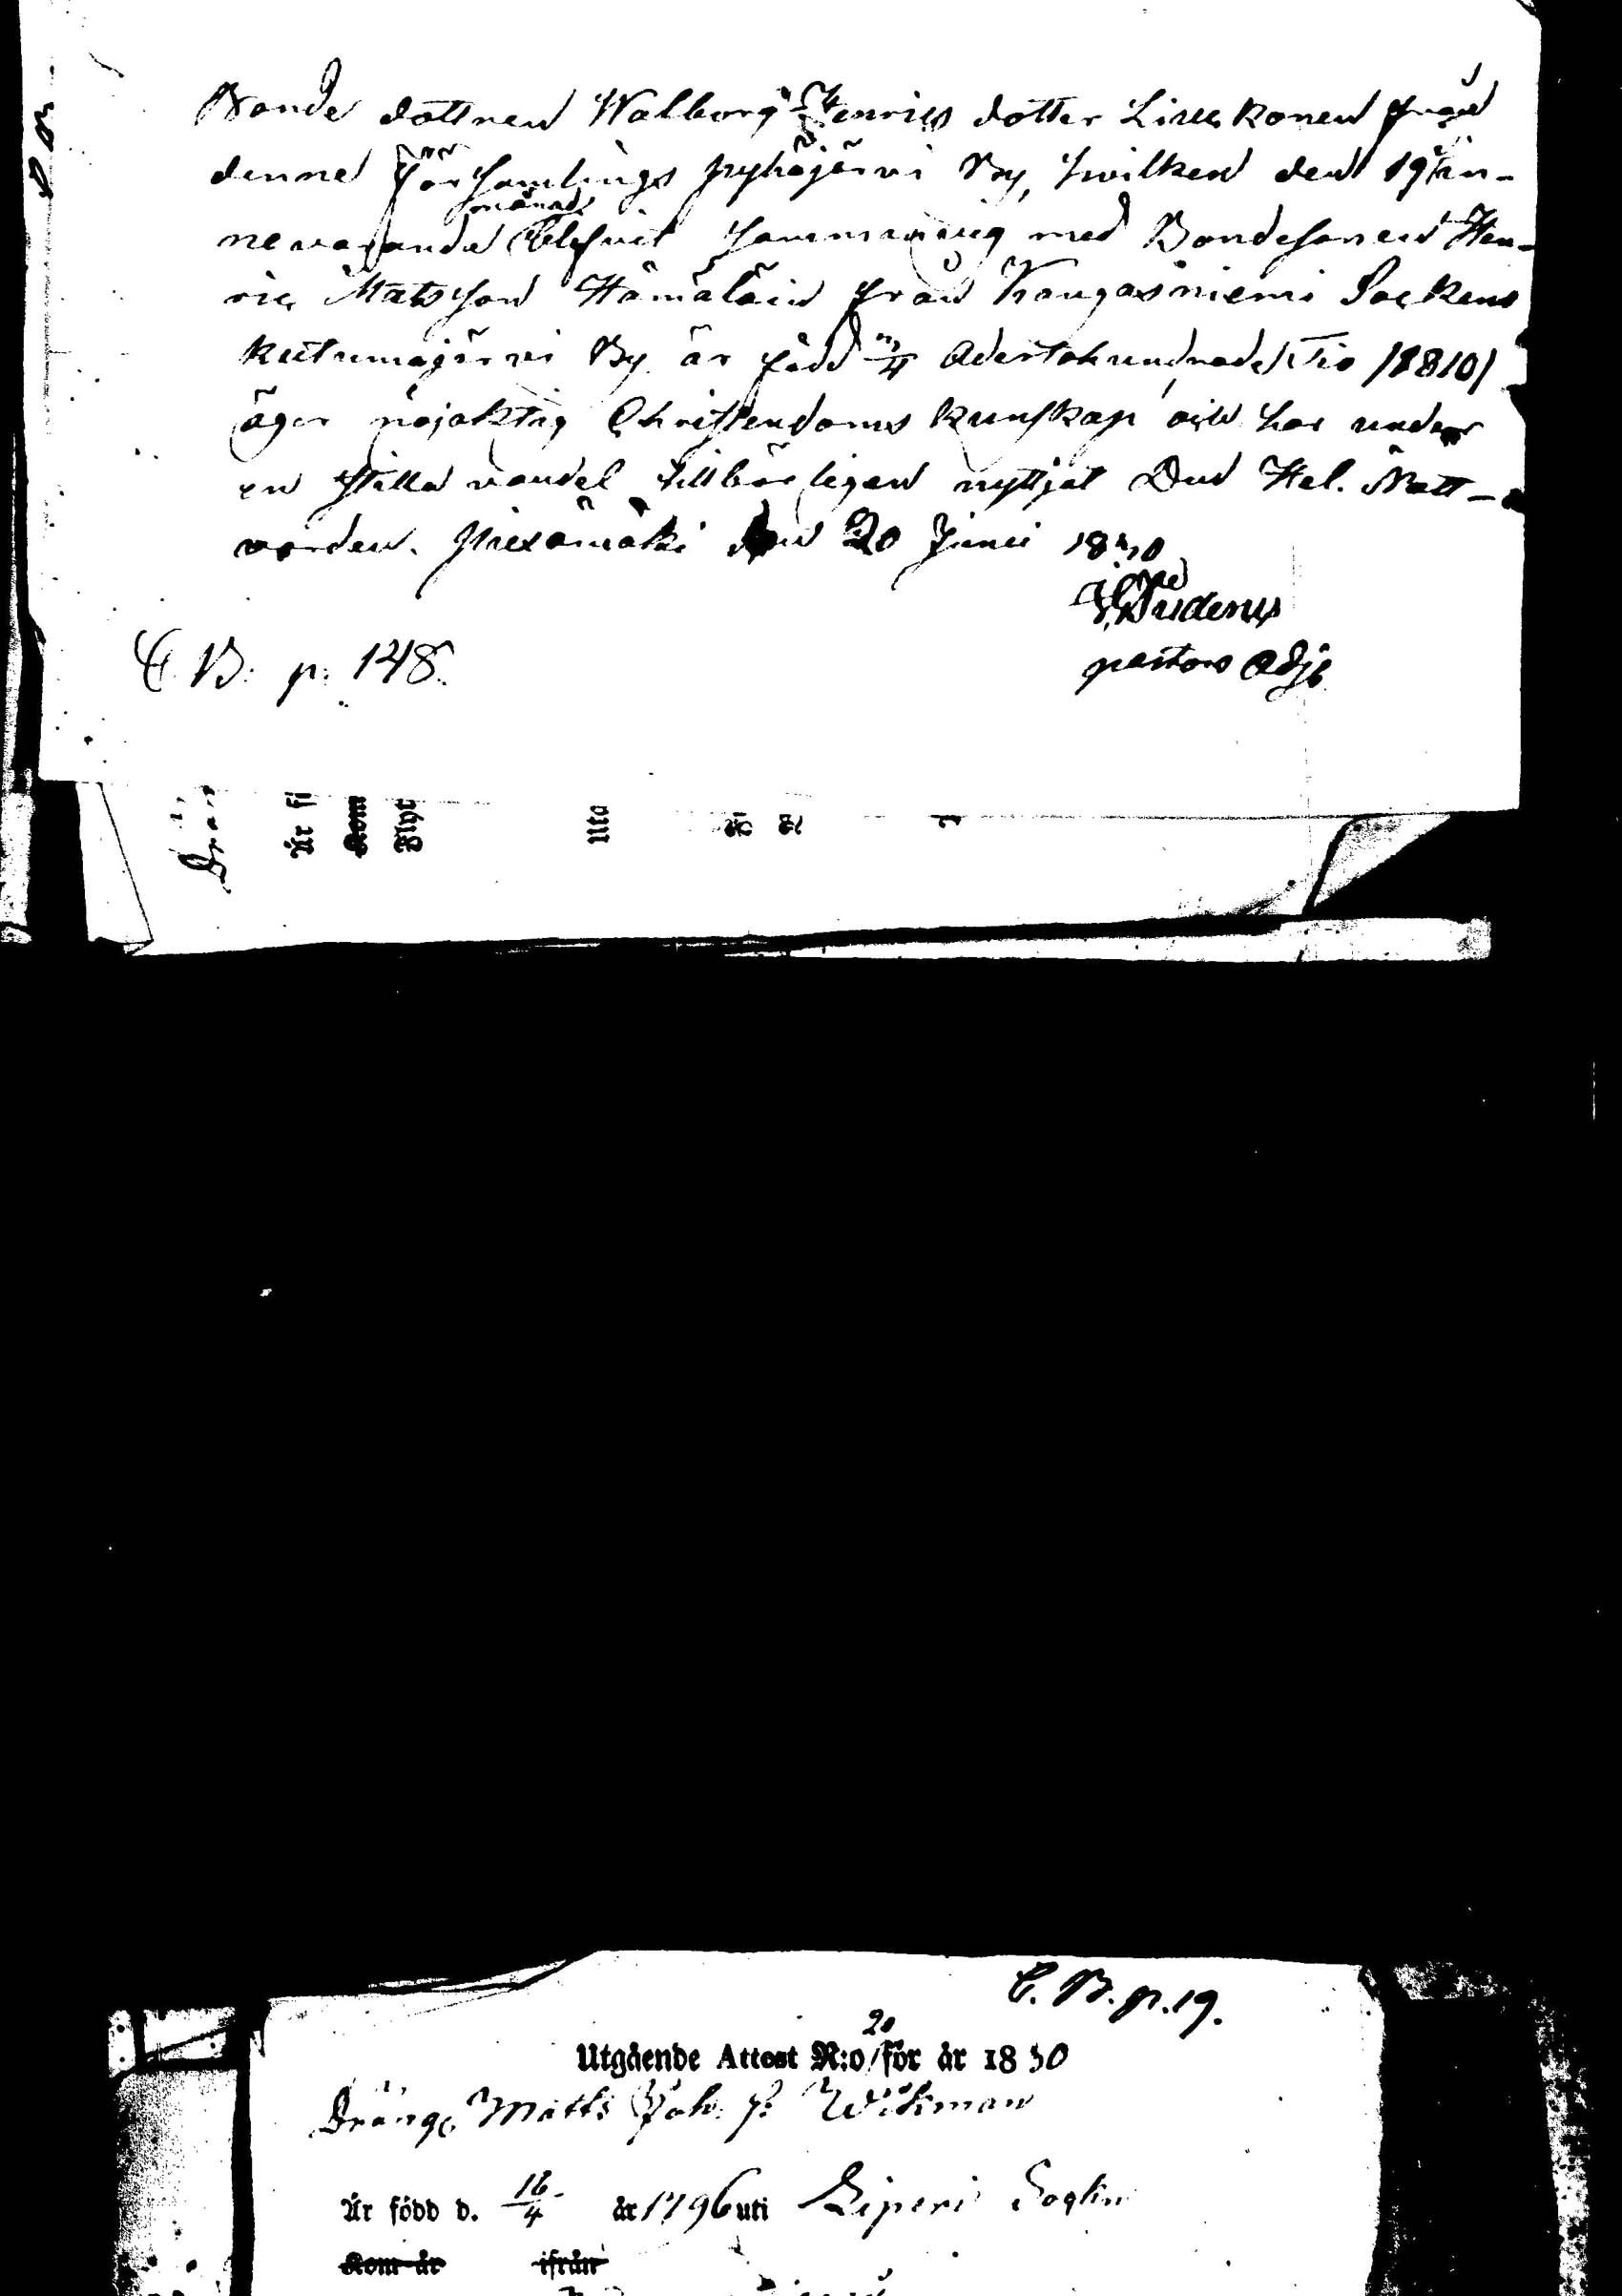 Bonde dottren Walborg Henrics dotter Liuckonen från
denne Församlings Pyhäjärvi By, hwilken den 19 in-
nevarande månad blefvit sammanvig med Bondesonen Hen-
ric Matsson Hämäläin från Kangasniemi Sockens
Kutumajärvi By är född Adertonhundrade Tio /1810/
äger nöjaktig Christendoms kunskap och har under
en stilla vandel tillbörligen nyttjat Den Hel. Natt-
varden. Piexämäki den 20 Junii 1830
pastors Adj:
C. B: p: 148.
Är fi
Kom
Flyt
Uta
C. B. p. 19.
Utgående Attest N:o 20 för år 1830
Dräng. Matts Joh: s: Wikman
Är född d. 16/4 år 1796 uti Liperi Sockn
Kom år ifrån